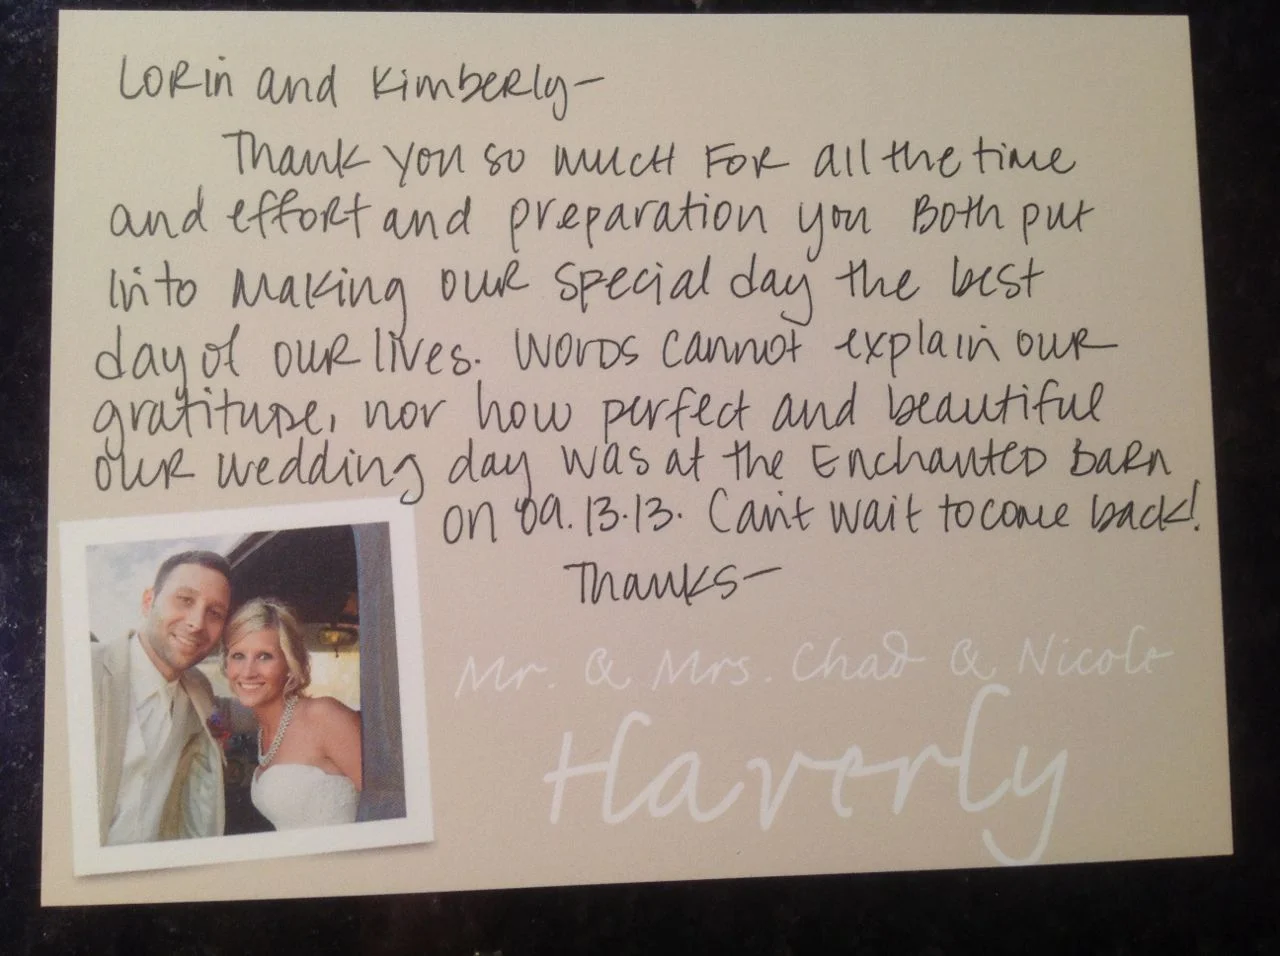 Lorin and Kimberly-
Thank you so much for all the time
and effort and preparation you Both put
into making our special day the best
day of our lives. Words cannot explain our
gratitude, nor how perfect and beautiful
our wedding day was at the Enchanted Barn
on 09.13.13. Can't wait to come back!
Thanks-
Mr. & Mrs. Chad & Nicole
Haverly